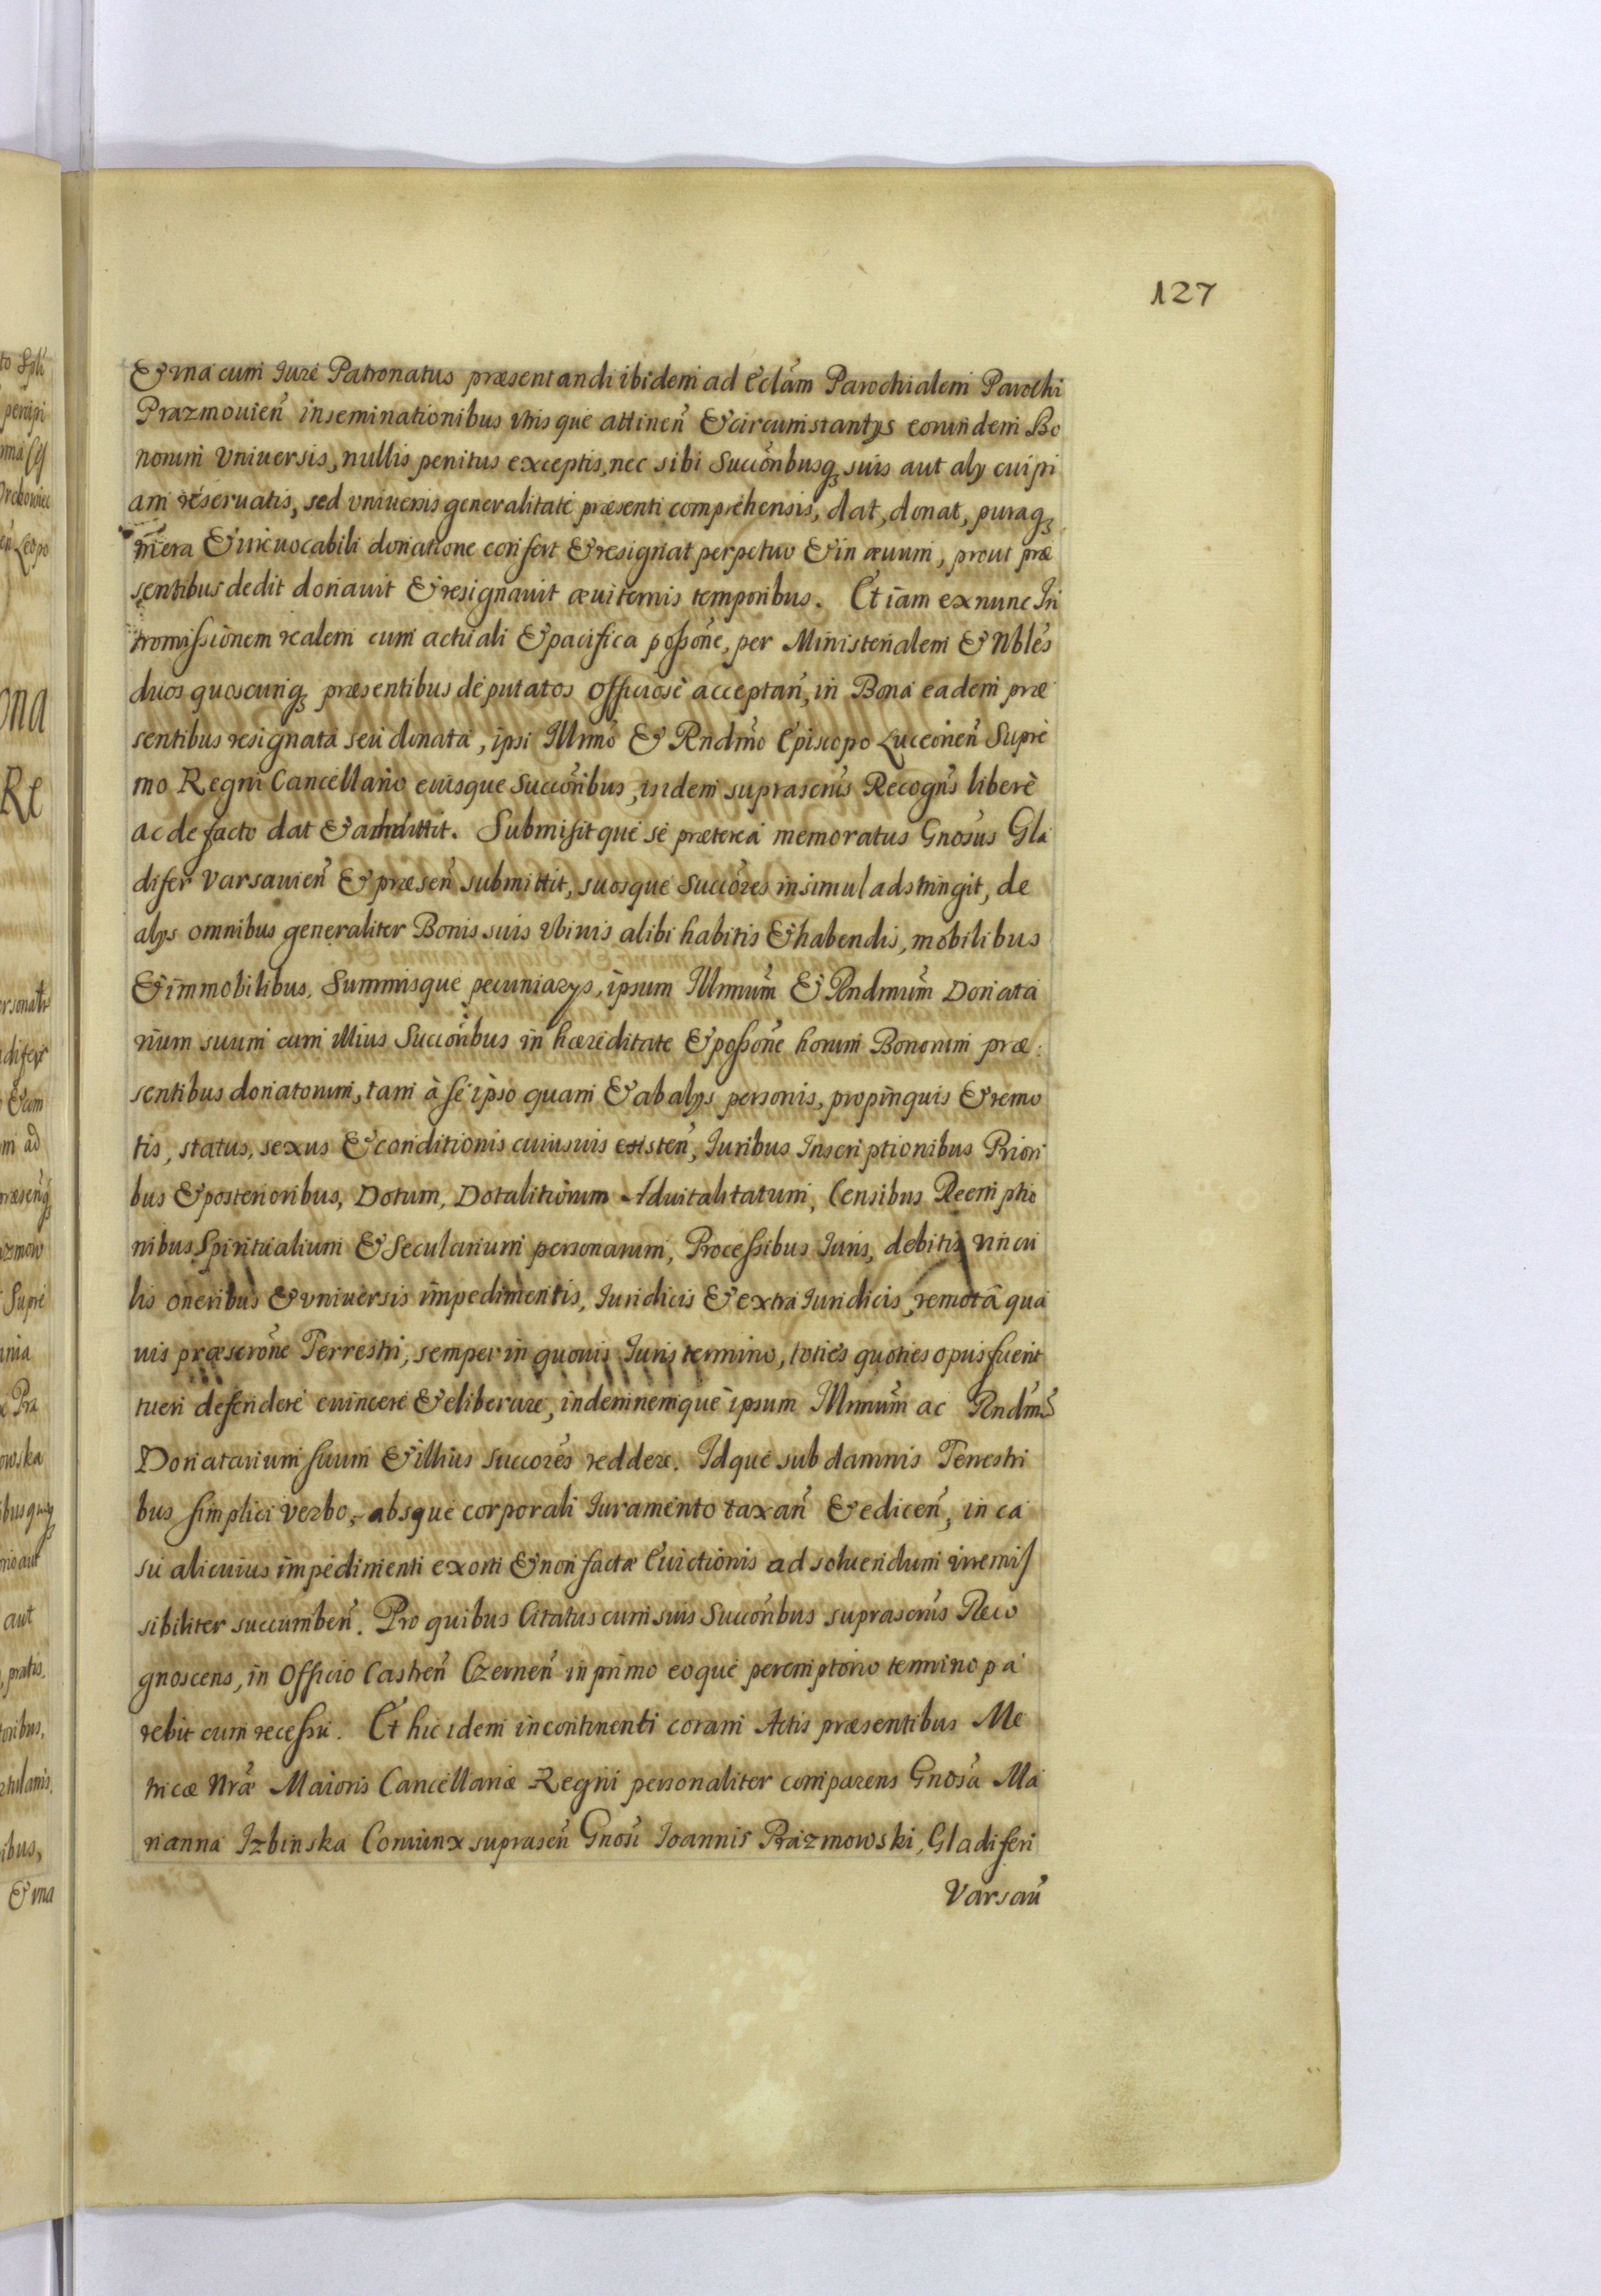 127
& vna cum Iure Patronatus præsentandi ibidem ad Eclãm Parochialem Parochi
Prazmouień inseminationibus vtrisque attineń & circumstantys eorundem Bo
norum Vniuersis, nullis penitus exceptis, nec sibi Succõribusq; suis aut aly cuipi
am reseruatis, sed vniuersis generalitate præsenti comprehensis, dat, donat, puraq;
mera & irreuocabili donatione confert & resignat perpetuo & in æuum, prout præ
sentibus dedit donauit & resignauit æuiternis temporibus. Etiam ex nunc In
tromissionem realem cum actuali & pacifica possõne, per Ministerialem & Nbles
duos quoscunq; præsentibus deputatos Officiosè acceptań, in Bona eadem præ
sentibus resignata seu donata, ipsi Illmo & Rndmo Episcopo Luceorień Supre
mo Regni Cancellario eiusque Succõribus, isidem suprascrus Recogns liberè
ac de facto dat & admittit. Submisitque se præterea memoratus Gnosus Gla
difer Varsauień & præseń submittit, suosque Succõres insimul adstringit, de
alys omnibus generaliter Bonis suis vbiuis alibi habitis & habendis, mobilibus
& immobilibus, Summisque pecuniarys, ipsum Illmum & Rndmum Donata
rium suum cum illius Succõribus in hæreditate & possõne horum Bonorum præ
sentibus donatorum, tam à se ipso quam & ab alys personis, propinquis & remo
tis, status, sexus & conditionis cuiusuis existeń, Iuribus Inscriptionibus Priori
bus & posterioribus, Dotum, Dotalitiorum Aduitalitatum, Censibus Reemptio
nibus Spiritualium & Secularium personarum, Processibus Iuris, debitis vincu
lis oneribus & vniuersis impedimentis, Iuridicis & extra Iuridicis, remotâ qua
uis præscrõne Terrestri, semper in quouis Iuris termino, toties quoties opus fuerit
tueri defendere euincere & eliberare, indemnemque ipsum Illmum ac Rndmu
Donatarium suum & illius succores reddere. Idque sub damnis Terrestri
bus simplici verbo, absque corporali Iuramento taxań & ediceń, in ca
su alicuius impedimenti exorti & non factæ Euictionis ad soluendum irremis
sibiliter succumbeń. Pro quibus Citatus cum suis Succõribus suprascrus Reco
gnoscens, in Officio Castreń Czerneń in primo eoque peremptorio termino pa
rebit cum recessu. Et hic idem incontinenti coram Actis præsentibus Me
tricæ Nræ Maioris Cancellariæ Regni personaliter comparens Gnosa Ma
rianna Izbinska Coniunx suprascń Gnosi Ioannis Prazmowski, Gladiferi
Varsau